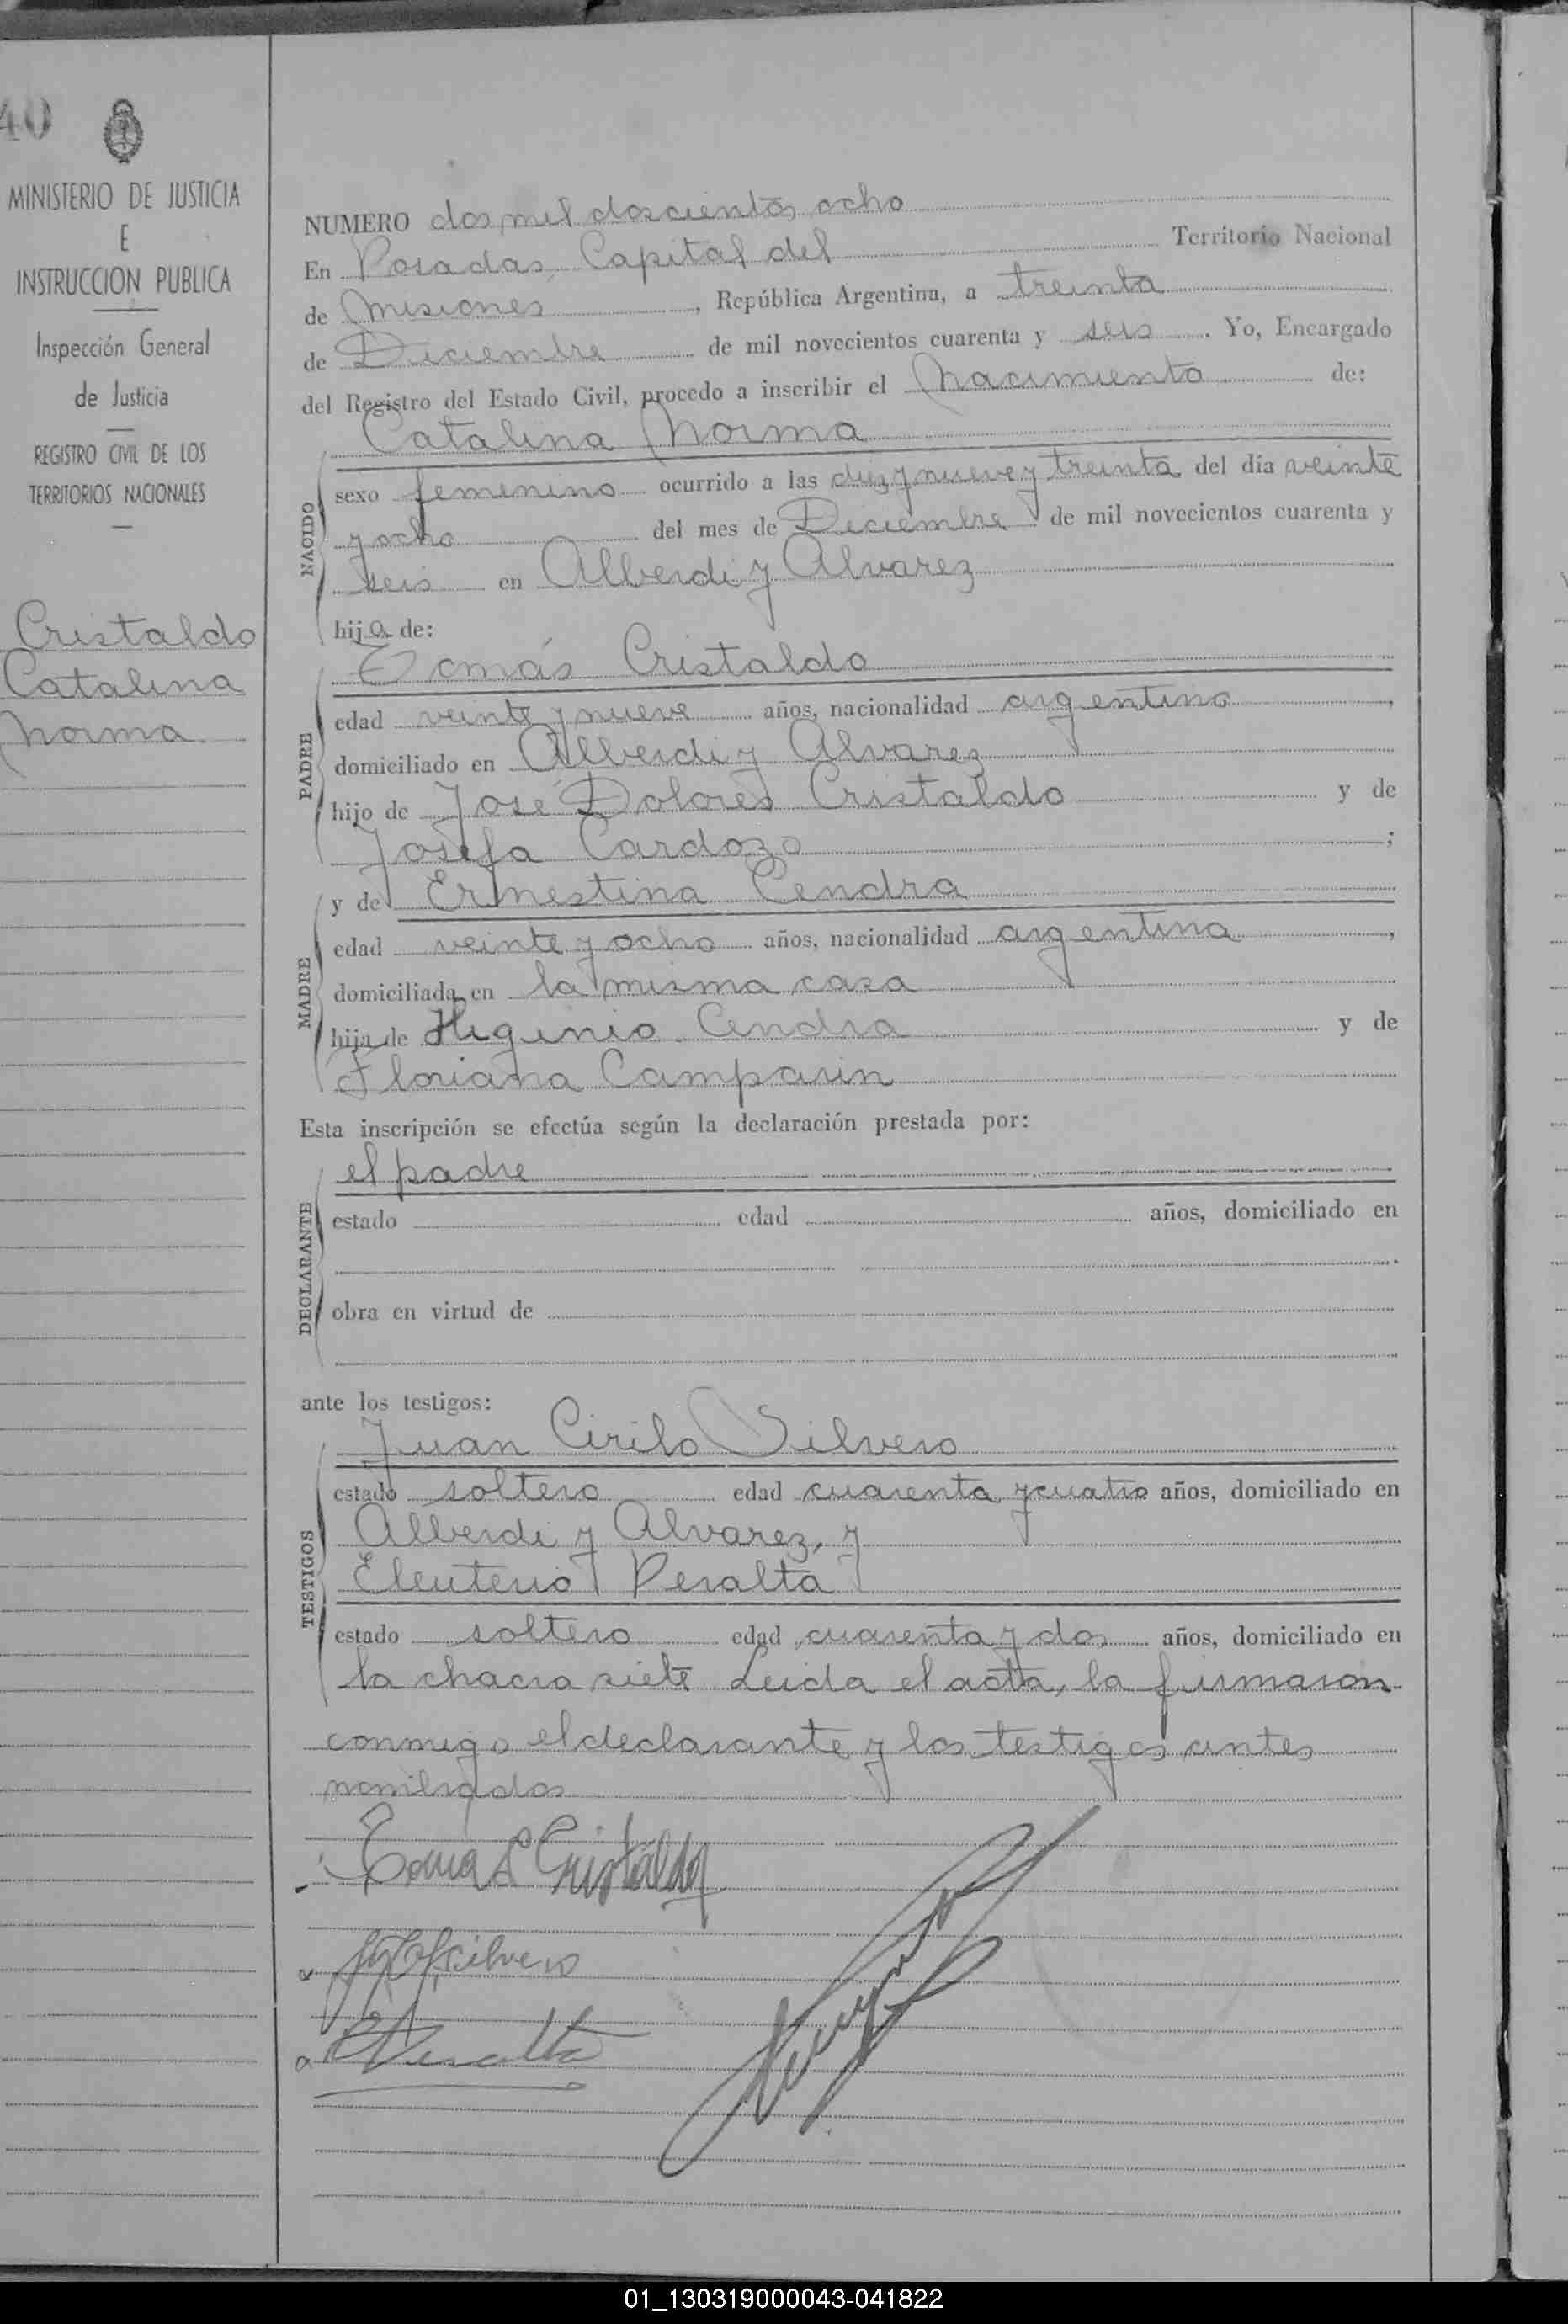 40
MINISTERIO DE JUSTICIA
E
INSTRUCCION PUBLICA
Inspección General
de Justicia
REGISTRO CIVIL DE LOS
TERRITORIOS NACIONALES
Cristaldo
Catalina
Norma
NUMERO dos mil doscientos ocho
En Posadas, Capital del Territorio Nacional
de Misiones, República Argentina, a treinta
de Diciembre de mil novecientos cuarenta y seis. Yo, Encargado
del Registro del Estado Civil, procedo a inscribir el Nacimiento de:
Catalina Norma
NACIDO
sexo femenino ocurrido a las diez y nueve y treinta del día veinte
y ocho del mes de Diciembre de mil novecientos cuarenta y
seis en Alberdi y Alvarez
hija de:
Tomás Cristaldo
PADRE
edad veinte y nueve años, nacionalidad argentino,
domiciliado en Alberdi y Alvarez
hijo de José Dolores Cristaldo y de
Josefa Cardozo;
y de Ernestina Cendra
MADRE
edad veinte y ocho años, nacionalidad argentina,
domiciliada en la misma casa
hija de Higinio Cendra y de
Floriana
Esta inscripción se efectúa según la declaración prestada por:
el padre
DECLARANTE
estado edad años, domiciliado en
obra en virtud de
ante los testigos:
Juan Cirilo Silvero
TESTIGOS
estado soltero edad cuarenta y cuatro años, domiciliado en
Alberdi y Alvarez, y
Eleuterio Peralta
estado soltero edad cuarenta y dos años, domiciliado en
la chacra siete Leida el acta, la firmaron
conmigo el declarante y los testigos antes
nombrados
Tomas Cristaldo
Silvero
Peralta
01_130319000043-041822